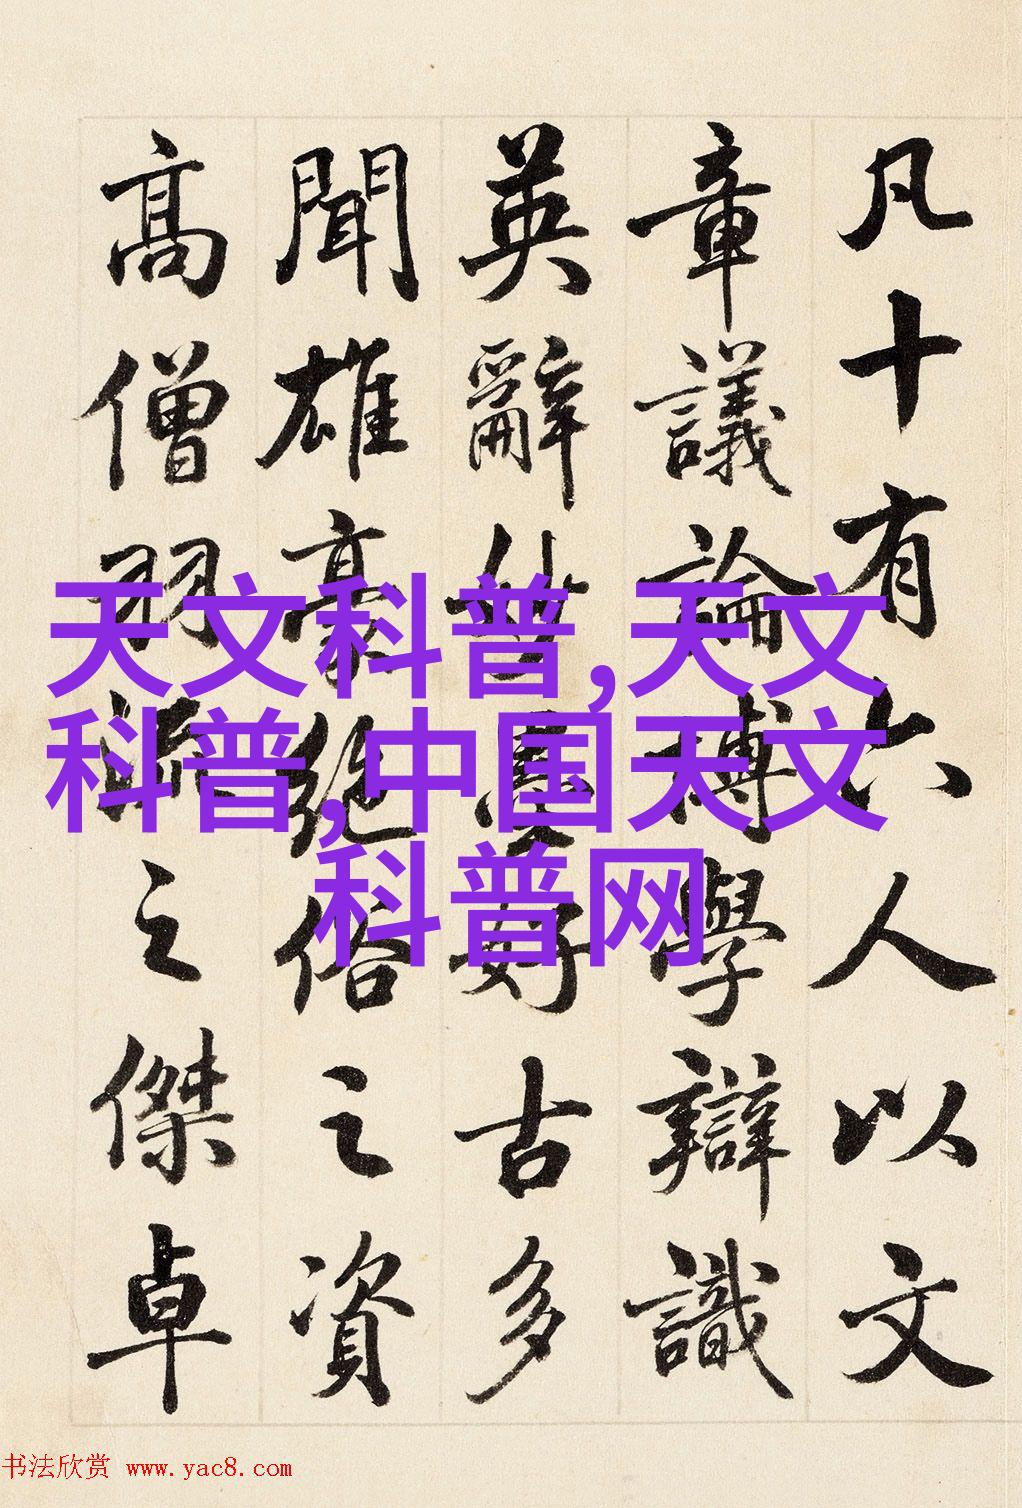 凡十有六人以文
章議論博學辯識
英辭妙墨好古多
聞雄豪絕俗之資
高僧羽流之傑卓
天文科普,天文
科普,中国天文
科普网
书法欣赏 www.yac8.com